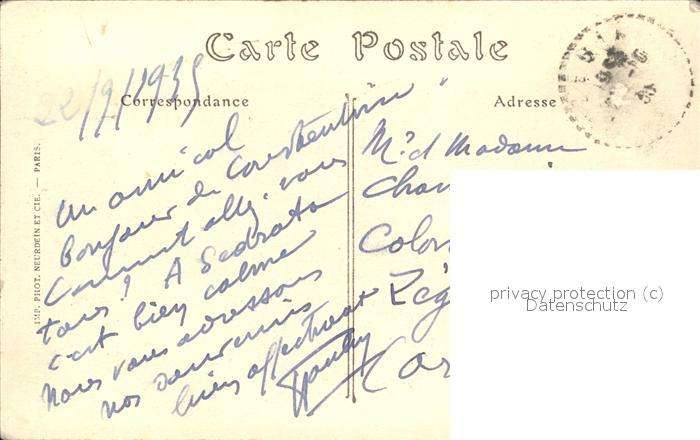 Carte Postale
Correspondance
Adresse
22/9/1935
Un amical
Bonjour de Constantine
Comment allez-vous
tous ? A Sedrata
c'est bien calme
Nous vous adressons
nos souvenirs
bien affectueux
Mr. et Madame
Colon
Rég
IMP. PHOT. NEURDEIN ET CIE. — PARIS.
privacy protection (c)
Datenschutz